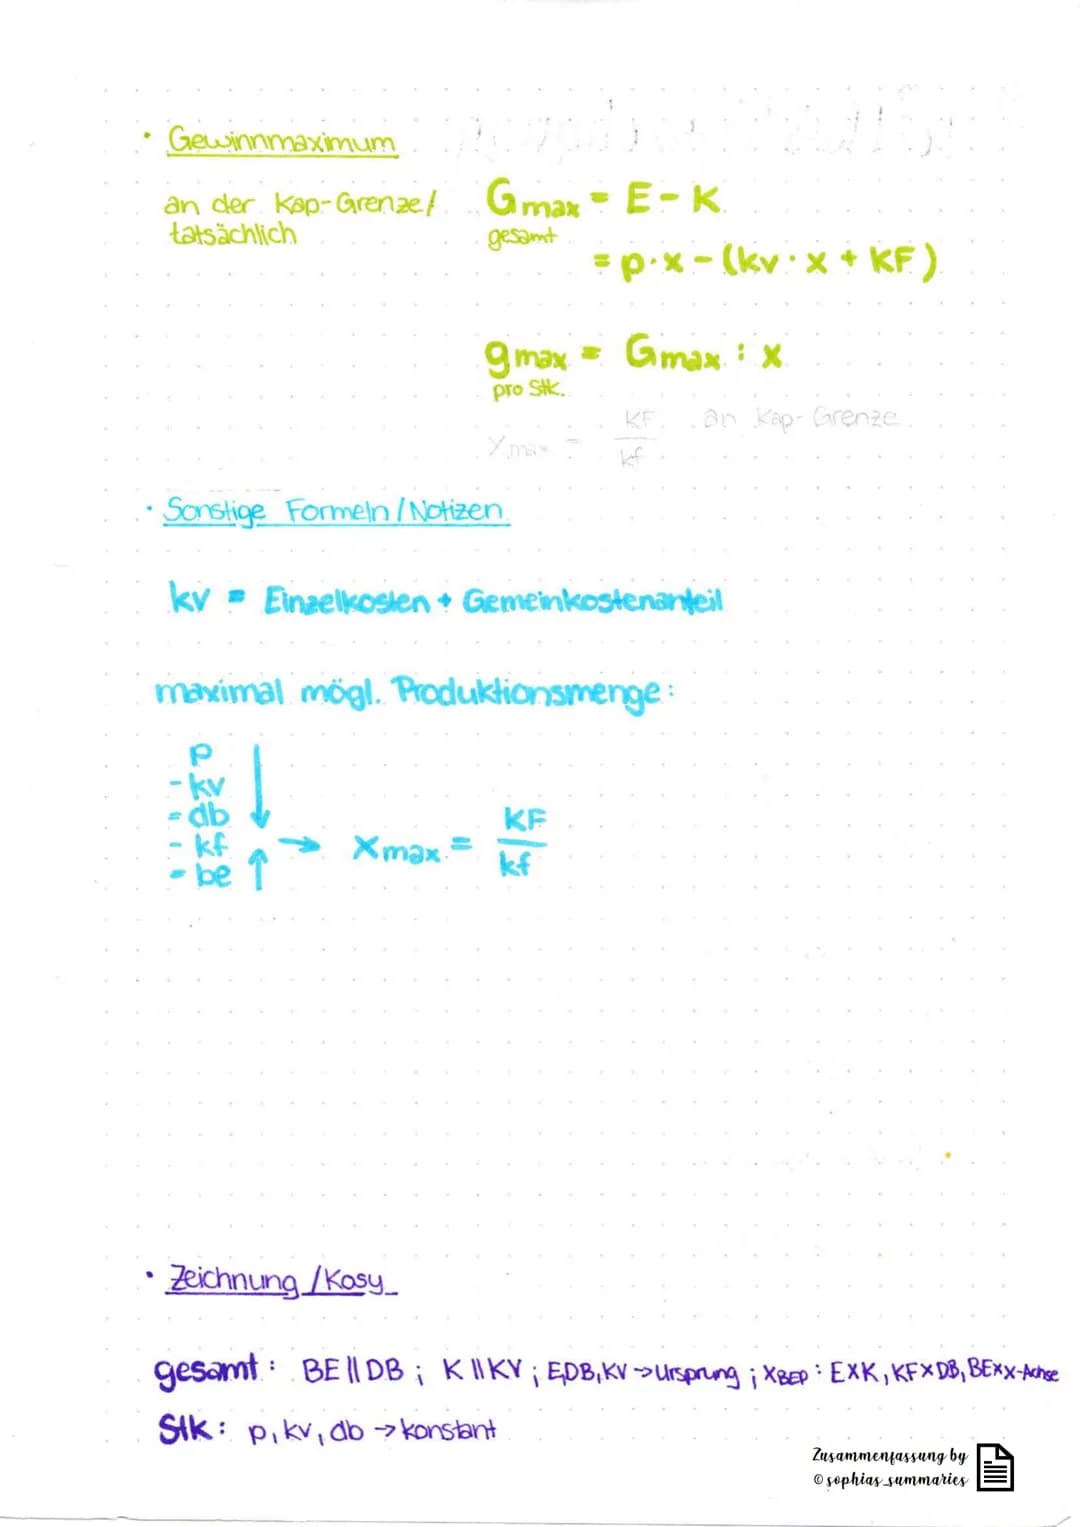 • Gewinnmaximum
an der Kap-Grenze/
tatsächlich
Gmax = E - K
gesamt
= p·x - (kv·x + KF)
gmax = Gmax : x
pro Stk.
Xmax = KF/kf an Kap-Grenze
• Sonstige Formeln/Notizen
kv = Einzelkosten + Gemeinkostenanteil
maximal mögl. Produktionsmenge:
p ↓
- kv
= db
- kf → Xmax = KF/kf
= be ↑
• Zeichnung/Kosy
gesamt: BE || DB; K || KV; E,DB,KV → Ursprung; XBEP: E×K, KF×DB, BE×x-Achse
Stk: p, kv, db → konstant
Zusammenfassung by
© sophias_summaries